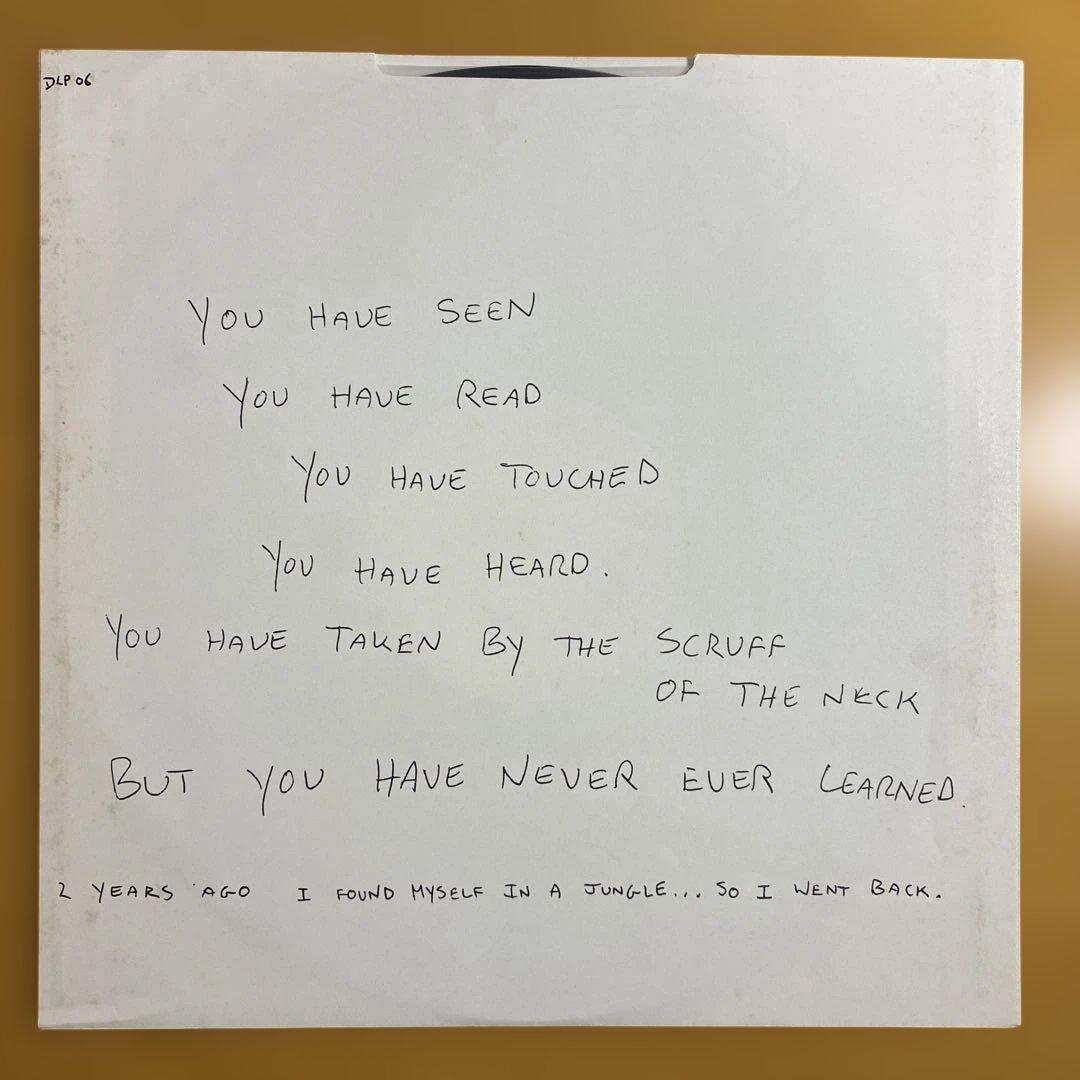 DLP 06
YOU HAVE SEEN
YOU HAVE READ
YOU HAVE TOUCHED
YOU HAVE HEARD.
YOU HAVE TAKEN BY THE SCRUFF
OF THE NECK
BUT YOU HAVE NEVER EVER LEARNED.
2 YEARS AGO I FOUND MYSELF IN A JUNGLE... SO I WENT BACK.